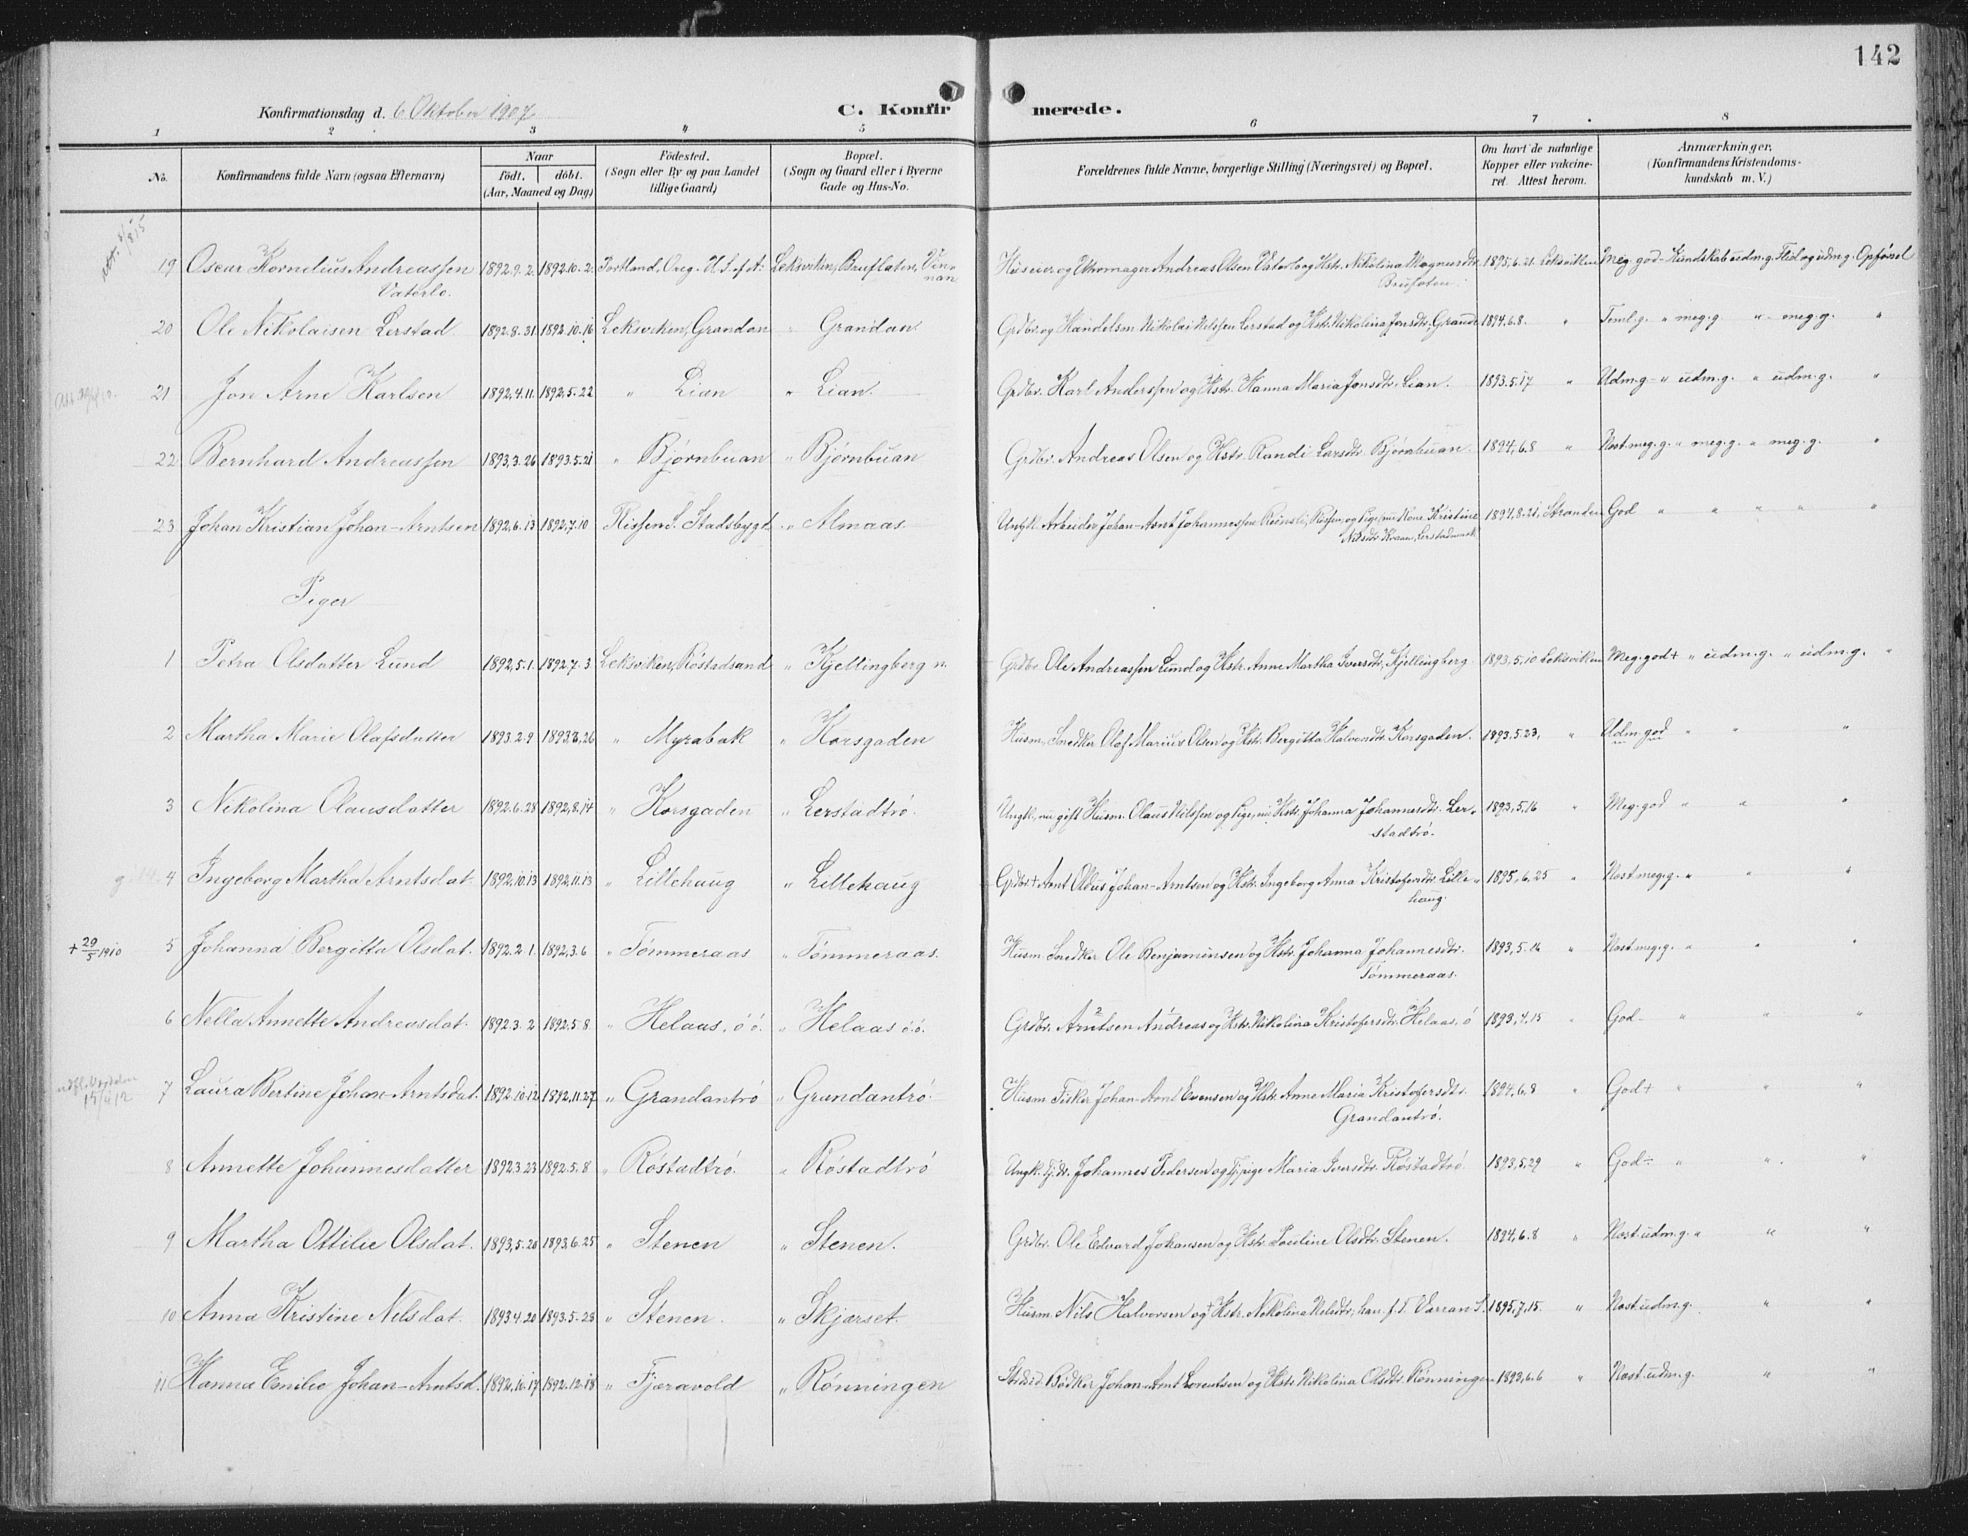 142
Konfirmationsdag d. 6 Oktober 1907
C. Konfirmerede.
1 2 3 4 5 6 7 8
No. Konfirmandens fulde Navn (ogsaa Efternavn) Naar født. døbt. (Aar, Maaned og Dag) Fødested. (Sogn eller By og paa Landet tillige Gaard) Bopæl. (Sogn og Gaard eller i Byerne Gade og Hus-No. Forældrenes fulde Navne, borgerlige Stilling (Næringsvei) og Bopæl. Om havt de naturlige Kopper eller vakcineret. Attest herom. Anmærkninger, (Konfirmandens Kristendomskundskab m. V.)
19 Oscar Kornelius Andreassen 1892.9.2. 1892.10.2. Portland, Oreg. U.S. of A. Leksviken, Bruflaten, Vin-
Vaterlo. nan
Huseier og Uhrmager Andreas Olsen Vaterlo og Hstr. Nikolina Magnusdtr. 1895.6.21. Leksviken Meg. god Kundskab udm.g. Flid og udm.g. Opførsel
20 Ole Nikolaisen Lerstad 1892.8.31 1892.10.16 Leksviken, Grandan " Grandan Grdbr. og Handelsm. Nikolai Nilssen Lerstad og Hstr. Nikolina Jonsdtr. Grande 1894.6.8. " Teml.g. " meg.g. " meg.g. "
21 Jon Arne Karlsen 1892.4.11. 1892.5.22 " Lian " Lian. Grdbr. Karl Anderssen og Hstr. Hanna Maria Jonsdtr. Lian. 1893.5.17 " Udm.g. " udm.g. " udm.g. "
22 Bernhard Andreassen 1893.3.26 1893.5.21 " Bjørnbuan " Bjørnbuan Grdbr. Andreas Olsen og Hstr. Randi Larsdtr. Bjørnbuan. 1894.6.8 " Næst.meg.g. " meg.g. " meg.g. "
23 Johan Kristian Johan-Arntsen 1892.6.13 1892.7.10 Rissen S. Stadsbygt " Almaas Ungk. Arbeider Johan-Arnt Johannessen Reinsli, Rissen, og Pige, nu Kone Kristine 1894.8.21. Stranden God " " " " "
Nilsdtr.
Piger
1 Petra Olsdatter Lund 1892.5.1. 1892.7.3 Leksviken, Røstadsand " Kjellingberg n. Grdbr. Ole Andreassen Lund og Hstr. Anne Martha Iversdtr. Kjellingberg 1893.5.10 Leksviken Meg. god+ " udm.g. " udm.g. "
2 Martha Marie Olafsdatter 1893.2.9 1893.3.26 " Myrabak " Korsgaden Husm., Snedker Olaf Marius Olsen og Hstr. Bergitta Halvorsdtr. Korsgaden. 1893.5.23. " Udm. god " " "
3 Nikolina Olausdatter 1892.6.28 1892.8.14 " Korsgaden " Lerstadtrø. Ungk., nu gift Husm. Olaus Nilssen og Pige, nu Hstr. Johanna Johannesdtr. Ler- 1893.5.16 " Meg. god " " "
stadtrø.
4 Ingeborg Martha Arntsdat. 1892.10.13 1892.11.13 " Lillehaug " Lillehaug Grdbr. + Arnt Oldus Johan-Arntsen og Hstr. Ingeborg Anna Kristofersdtr. Lille- 1895.6.25 " Næst.meg.g. " " "
haug.
+ 29/5 1910 5 Johanna Bergitta Olsdat. 1892.2.1. 1892.3.6 " Tømmeraas " Tømmeraas. Husm. Snedker Ole Benjaminsen og Hstr. Johanna Johannesdtr. 1893.5.16 " Næst.meg.g. " " "
Tømmeraas.
6 Nella Annette Andreasdat. 1892.3.2 1892.5.8 " Helaas, ø.ø. " Helaas ø.ø. Grdbr. Arntsen 2 Andreas 1 og Hstr. Nikolina Kristofersdtr. Helaas, ø 1893.4.15 " God " " "
7 Laura Bertine Johan-Arntsdat. 1892.10.12 1892.11.27 " Grandantrø " Grandantrø. Husm. Fisker Johan-Arnt Evensen og Hstr. Anne Maria Kristofersdtr. 1894.6.8 " God+ " " "
15/4 12 Grandantrø.
8 Annette Johannesdatter 1892.3.23 1892.5.8 " Røstadtrø. " Røstadtrø Ungk. Tj.dr. Johannes Pedersen og Tj.pige Maria Iversdtr. Røstadtrø. 1893.5.29 " God " " "
9 Martha Ottilie Olsdat. 1893.5.20 1893.6.25 " Stenen " Stenen. Grdbr. Ole Edvard Johansen og Hstr. Pauline Olsdtr. Stenen. 1894.6.8 " Næst.udm.g. " " "
10 Anna Kristine Nilsdat. 1893.4.20 1893.5.23 " Stenen. " Skjærset. Husm. Nils Halvorsen og + Hstr. Nikolina Nilsdtr., han f.T. Varran S. 1895.7.15. " Næst.udm.g. " "
11 Hanna Emilie Johan-Arntsd. 1892.11.17 1892.12.18 " Fjæravold " Rønningen Bødker Johan-Arnt Lorentsen og Hstr. Nikolina Olsdtr. Rønningen 1893.6.6 " Næst.udm.g. " "